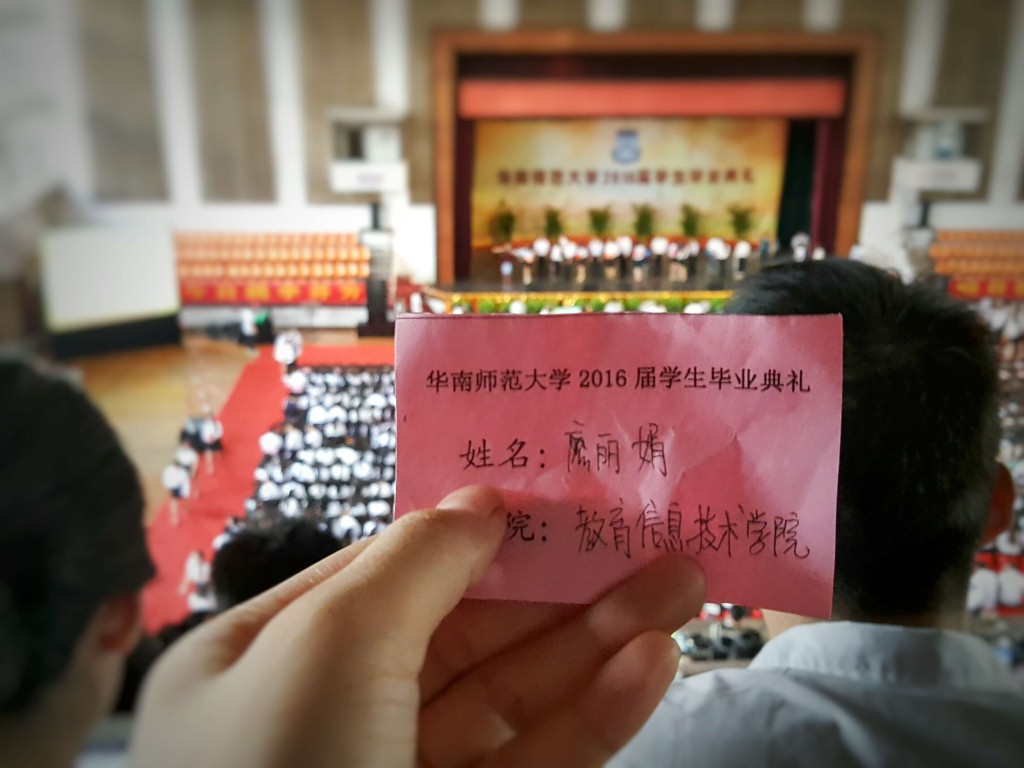 华南师范大学2016届学生毕业典礼
华南师范大学 2016 届学生毕业典礼
姓名：庶丽娟
院：教育信息技术学院